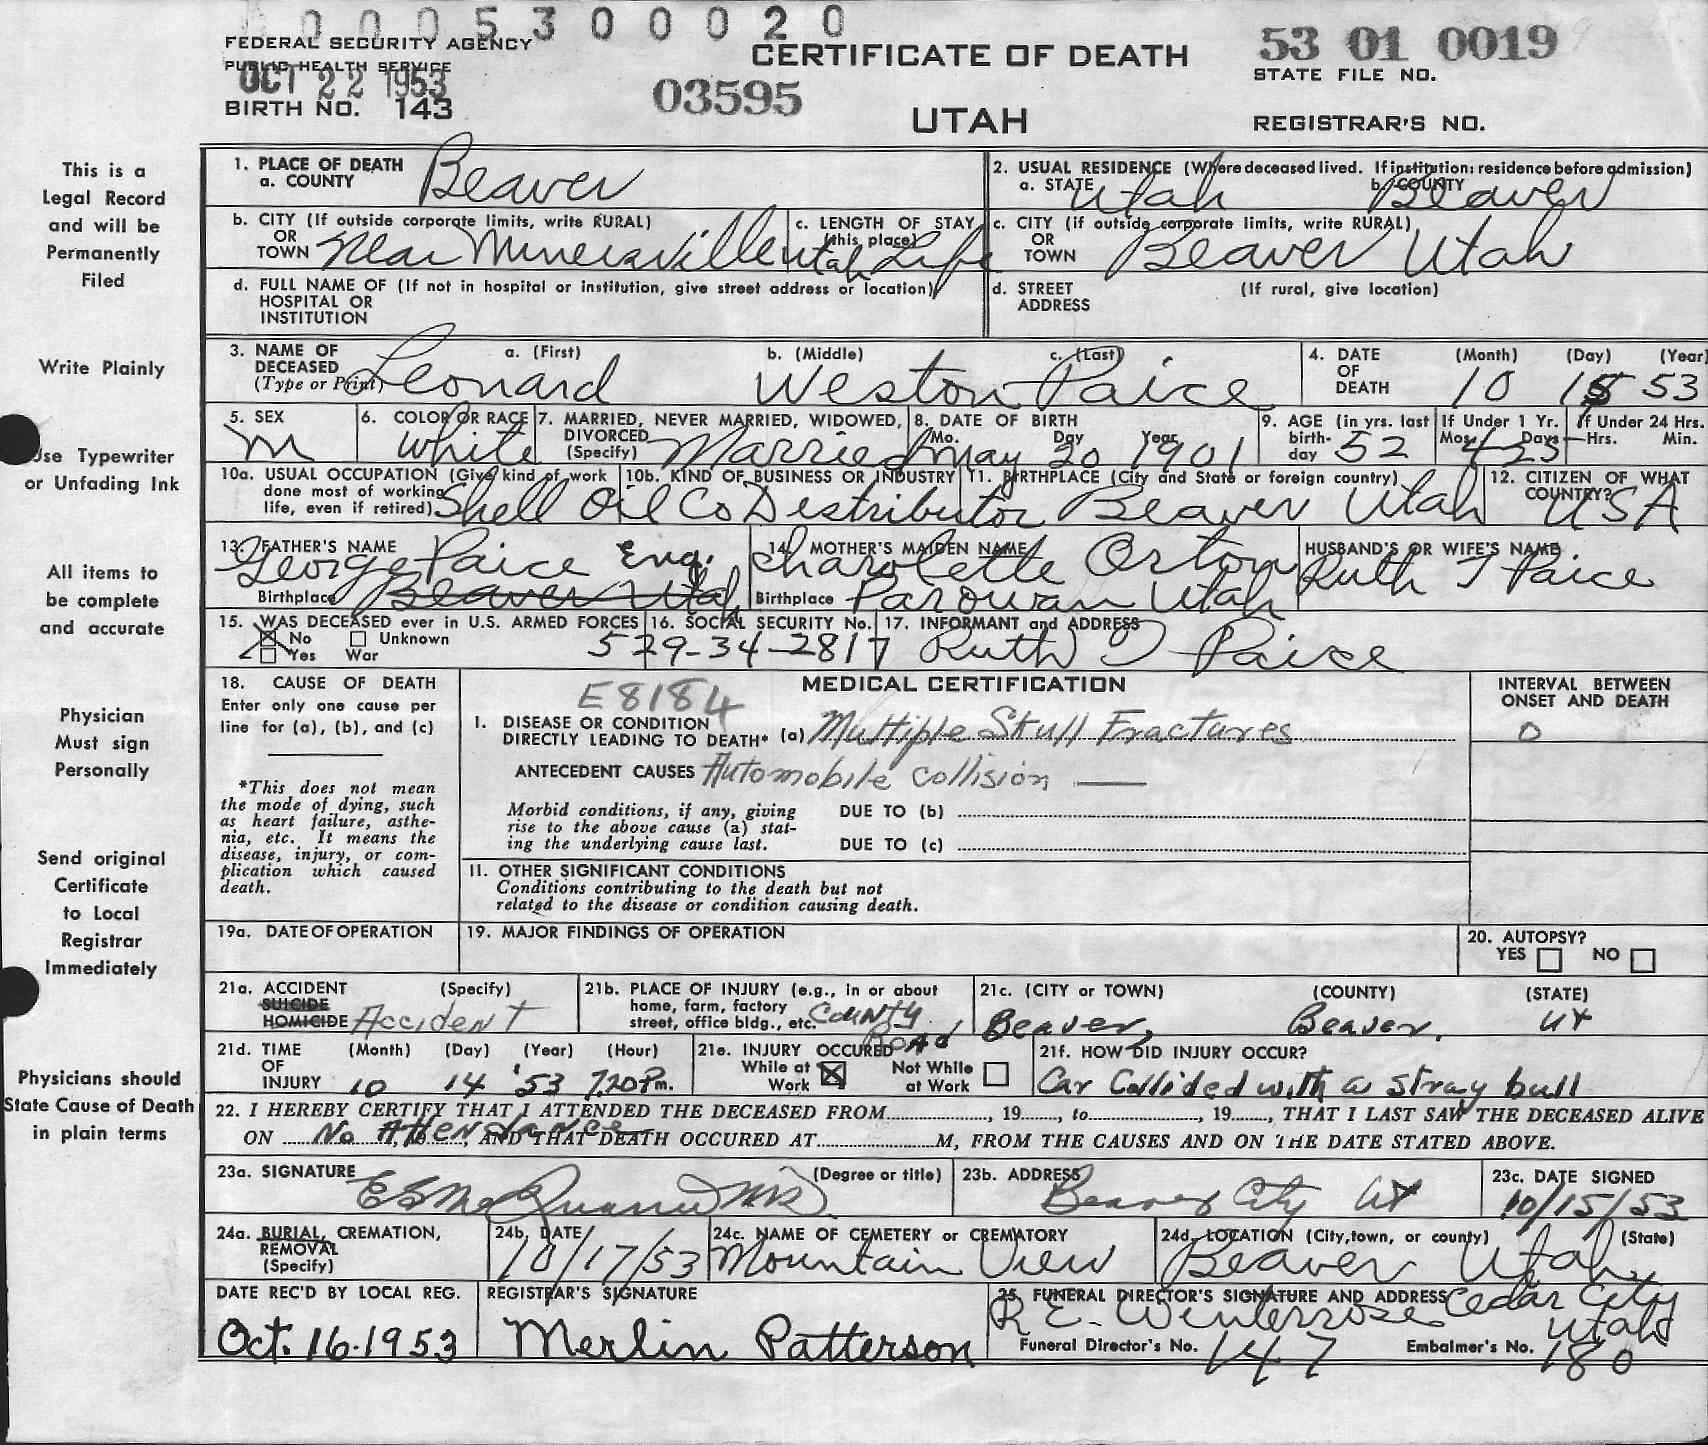 0 0 0 5 3 0 0 0 2 0
FEDERAL SECURITY AGENCY
PUBLIC HEALTH SERVICE
OCT 22 1953
BIRTH NO. 143
03595
CERTIFICATE OF DEATH
UTAH
53 01 0019
STATE FILE NO.
REGISTRAR'S NO.
This is a
Legal Record
and will be
Permanently
Filed
Write Plainly
Use Typewriter
or Unfading Ink
All items to
be complete
and accurate
Physician
Must sign
Personally
Send original
Certificate
to Local
Registrar
Immediately
Physicians should
State Cause of Death
in plain terms
1. PLACE OF DEATH
a. COUNTY Beaver
2. USUAL RESIDENCE (Where deceased lived. If institution: residence before admission)
a. STATE Utah b. COUNTY Beaver
b. CITY (If outside corporate limits, write RURAL)
OR
TOWN Near Minersville Utah
c. LENGTH OF STAY
(this place) Life
c. CITY (if outside corporate limits, write RURAL)
OR
TOWN Beaver Utah
d. FULL NAME OF (If not in hospital or institution, give street address or location)
HOSPITAL OR
INSTITUTION
d. STREET (If rural, give location)
ADDRESS
3. NAME OF DECEASED (Type or Print)
a. (First) b. (Middle) c. (Last)
Leonard Weston Paice
4. DATE OF DEATH (Month) (Day) (Year)
10 15 53
5. SEX
M
6. COLOR OR RACE
White
7. MARRIED, NEVER MARRIED, WIDOWED,
DIVORCED
(Specify) Married
8. DATE OF BIRTH
Mo. Day Year
May 20 1901
9. AGE (in yrs. last
birth-
day 52
If Under 1 Yr.
Mos. Days
4 25
If Under 24 Hrs.
Hrs. Min.
10a. USUAL OCCUPATION (Give kind of work
done most of working
life, even if retired) Shell Oil Co
10b. KIND OF BUSINESS OR INDUSTRY
Distributor
11. BIRTHPLACE (City and State or foreign country)
Beaver Utah
12. CITIZEN OF WHAT
COUNTRY?
USA
13. FATHER'S NAME
George Paice Eng.
Birthplace Beaver Utah
14. MOTHER'S MAIDEN NAME
Charolette Orton
Birthplace Parowan Utah
HUSBAND'S OR WIFE'S NAME
Ruth T Paice
15. WAS DECEASED ever in U.S. ARMED FORCES
No Unknown
Yes War
16. SOCIAL SECURITY No.
529-34-2817
17. INFORMANT and ADDRESS
Ruth T Paice
18. CAUSE OF DEATH
Enter only one cause per
line for (a), (b), and (c)
*This does not mean
the mode of dying, such
as heart failure, asthe-
nia, etc. It means the
disease, injury, or com-
plication which caused
death.
MEDICAL CERTIFICATION
E8184
I. DISEASE OR CONDITION
DIRECTLY LEADING TO DEATH* (a) Multiple Skull Fractures
ANTECEDENT CAUSES Automobile collision
Morbid conditions, if any, giving
rise to the above cause (a) stat-
ing the underlying cause last.
DUE TO (b)
DUE TO (c)
II. OTHER SIGNIFICANT CONDITIONS
Conditions contributing to the death but not
related to the disease or condition causing death.
INTERVAL BETWEEN
ONSET AND DEATH
0
19a. DATE OF OPERATION
19. MAJOR FINDINGS OF OPERATION
20. AUTOPSY?
YES NO
21a. ACCIDENT (Specify)
SUICIDE
HOMICIDE Accident
21b. PLACE OF INJURY (e.g., in or about
home, farm, factory
street, office bldg., etc. County
Road
21c. (CITY or TOWN) (COUNTY) (STATE)
Beaver, Beaver. UT
21d. TIME OF INJURY (Month) (Day) (Year) (Hour)
10 14 '53 7.20 P m.
21e. INJURY OCCURED
While at Work Not While at Work
21f. HOW DID INJURY OCCUR?
Car Collided with a stray bull
22. I HEREBY CERTIFY THAT I ATTENDED THE DECEASED FROM, 19, to, 19, THAT I LAST SAW THE DECEASED ALIVE
ON No Attendance, AND THAT DEATH OCCURED AT M, FROM THE CAUSES AND ON THE DATE STATED ABOVE.
23a. SIGNATURE (Degree or title)
23b. ADDRESS
Beaver City UT
23c. DATE SIGNED
10/15/53
24a. BURIAL, CREMATION,
REMOVAL
(Specify)
24b. DATE
10/17/53
24c. NAME OF CEMETERY or CREMATORY
Mountain View
24d. LOCATION (City, town, or county) (State)
Beaver Utah
DATE REC'D BY LOCAL REG.
Oct. 16. 1953
REGISTRAR'S SIGNATURE
Merlin Patterson
25. FUNERAL DIRECTOR'S SIGNATURE AND ADDRESS
R E Winterrose Cedar City
Utah
Funeral Director's No. 147
Embalmer's No. 180